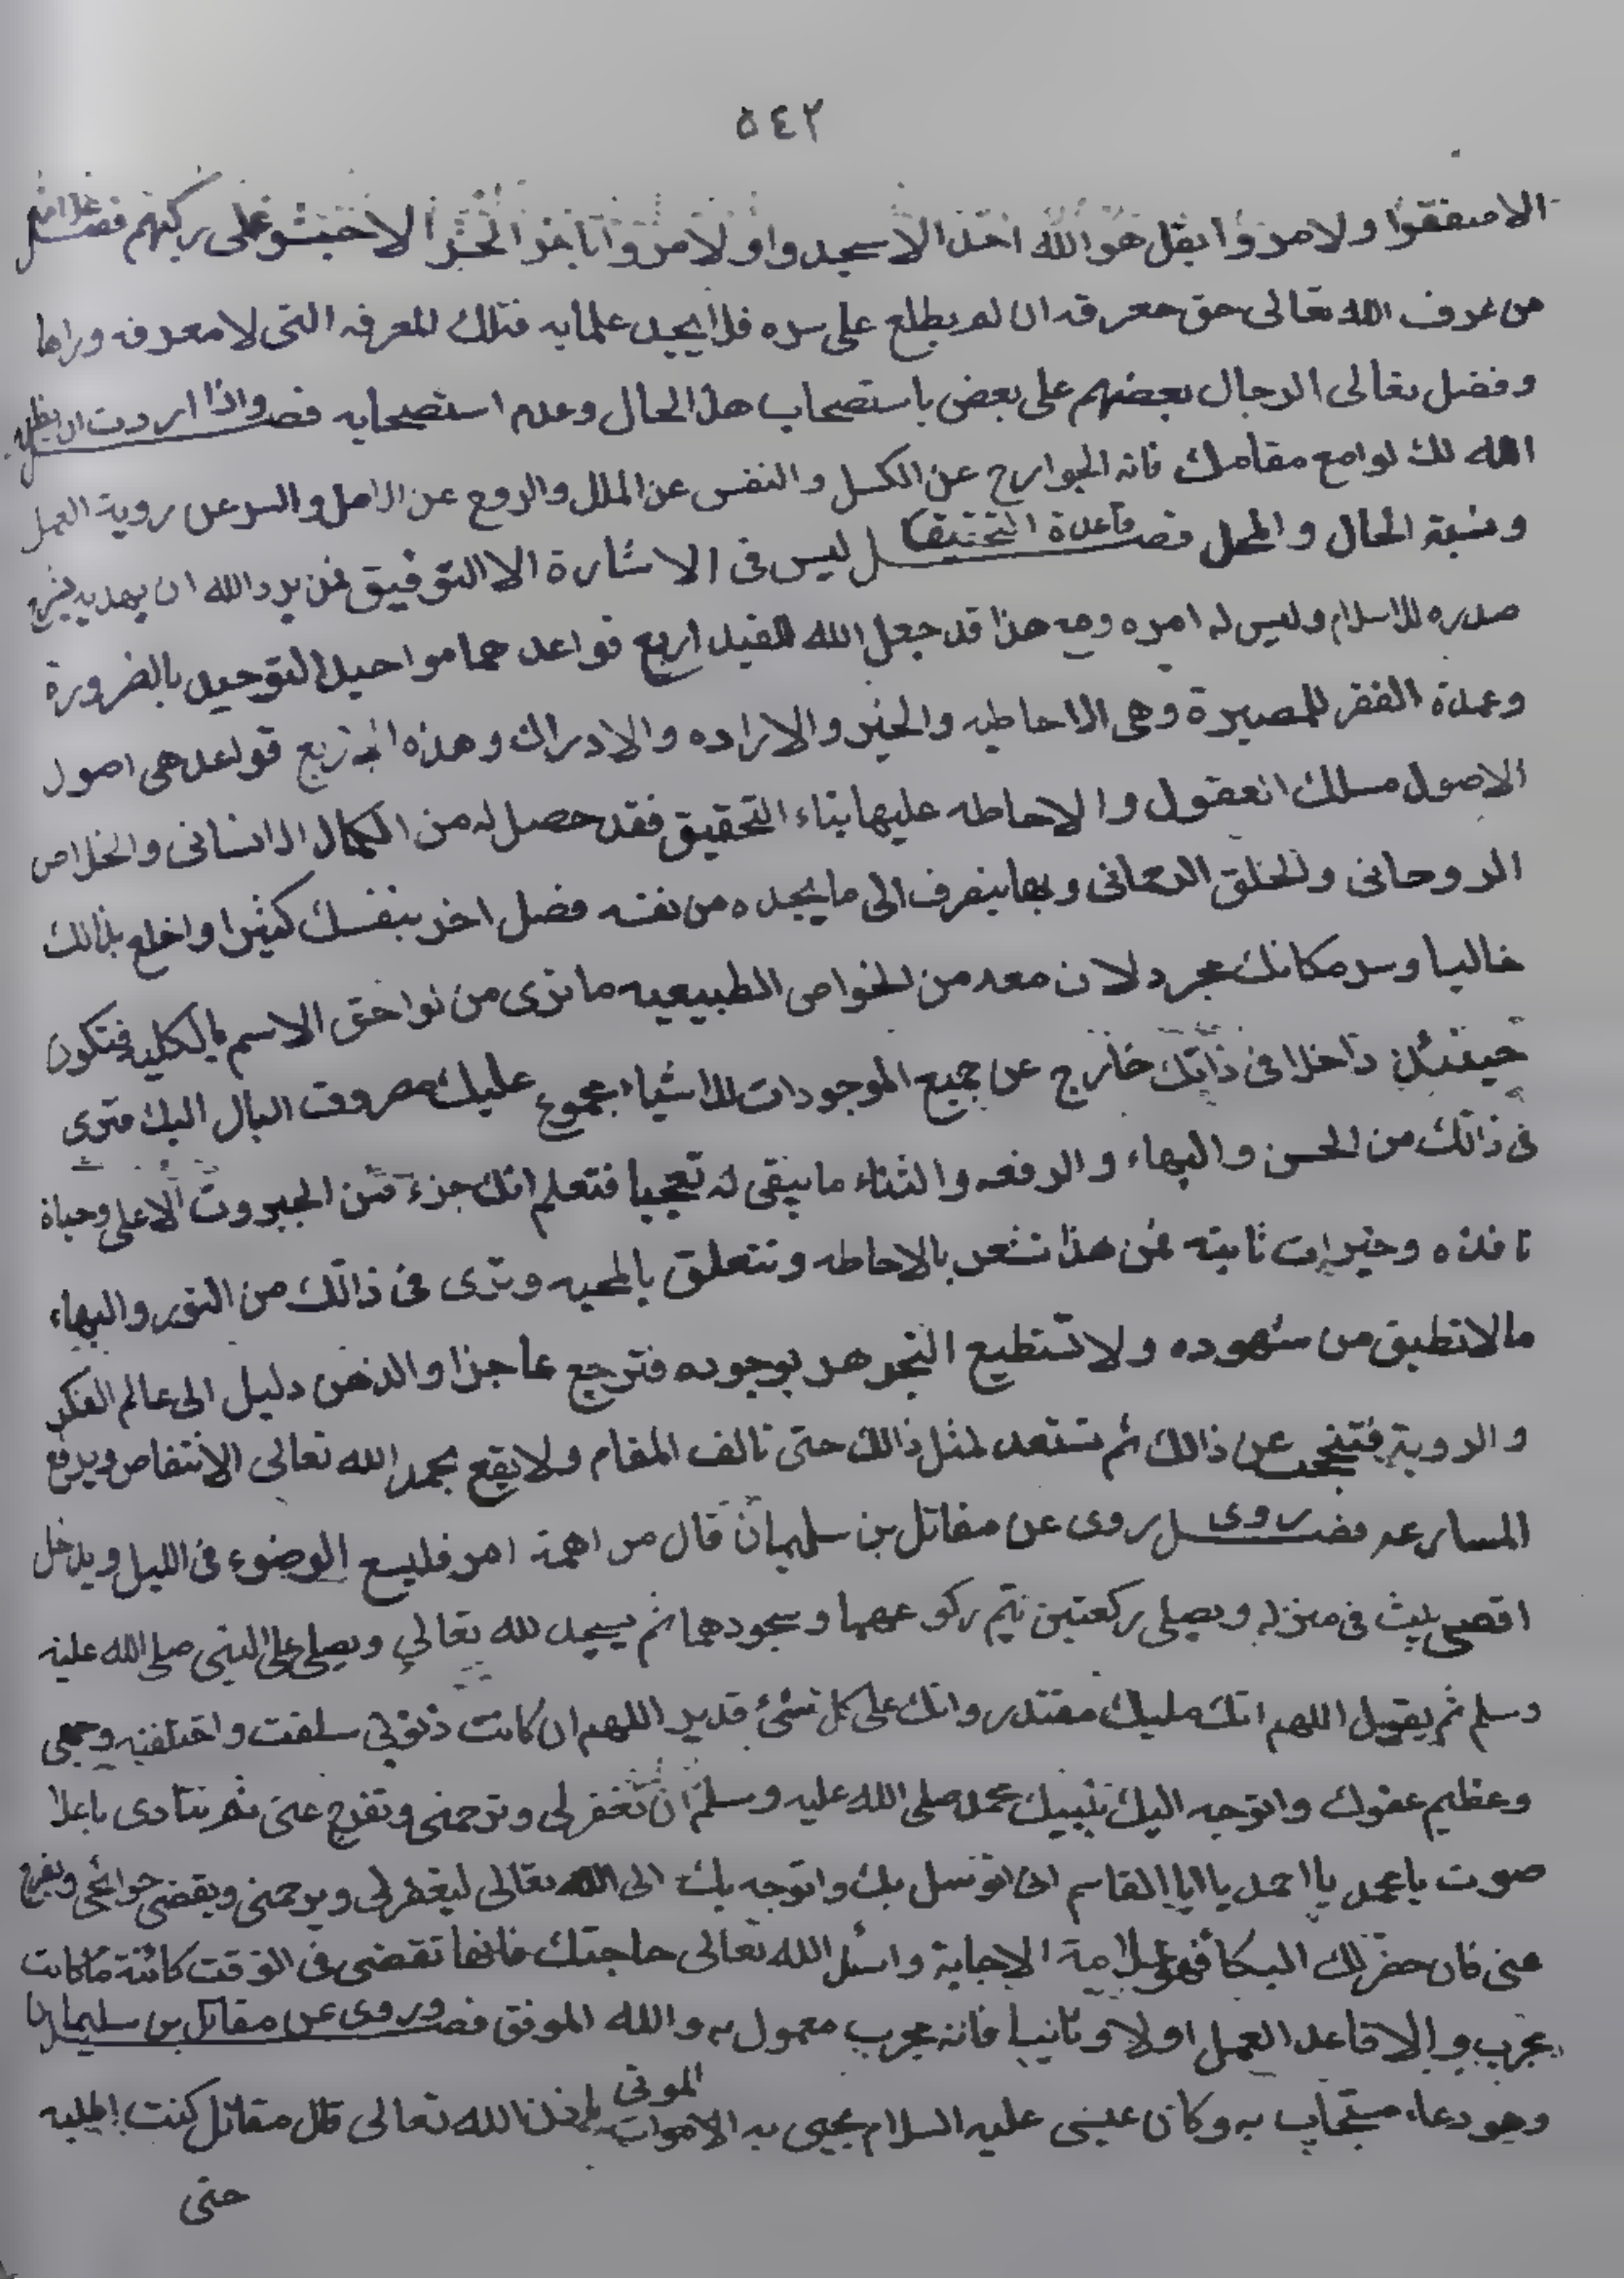 ٥٤٢
الا صفقوا ولا مروا بقل هو الله احد الا سجدوا ولا مروا باخر الحشر الا جثوا على ركبهم فصل
من عرف الله تعالى حق معرفته ان لم يطلع على سره فلا يجد علما به فتلك المعرفه التى لا معرفه وراها
وفضل تعالى الرجال بعضهم على بعض باستصحاب هذا الحال وعدم استصحابه فصل واذا اردت ان يظهر
الله لك لوامع مقامك فانه الجوارح عن الكسل والنفس عن الملل والروح عن الامل والسر عن روية العمل
ونسبة الحال والمحل فصل قاعدة التحقيق ليس فى الاشارة الا التوفيق فمن يرد الله ان يهديه يشرح
صدره للاسلام وليس له امره ومع هذا قد جعل الله للعبد اربع قواعد هما مواحيد التوحيد بالضرورة
وعمدة الفقر للمصيرة وهى الاحاطيه والخير والاراده والادراك وهذه الاربع قواعد هى اصول
الاصول مسلك العقول والاحاطه عليها بناء التحقيق فقد حصل له من الكمال الانسانى والخلاص
الروحانى والخلق الرحمانى وبها ينصرف الى ما يجده من نفسه فصل اخر بنفسك كثيرا واخلع بذالك
خاليا وسر مكانك مجرد لان معد من الخواص الطبيعيه ما ترى من لواحق الاسم بالكليه فتكون
حينئذ داخلا فى ذاتك خارج عن جميع الموجودات للاشياء مجموع عليك مصروف البال اليك فترى
فى ذاتك من الحسن والبهاء والرفعه والثناء ما يبقى له تعجبا فتعلم انك جزء من الجبروت الاعلى وحياة
نافذه وخيرات ثابته فمن هذا تشعر بالاحاطه وتتعلق بالمحبه وترى فى ذاتك من النور والبهاء
ما لا تطيق من شهوده ولا تستطيع التجوهر بوجوده فترجع عاجزا والذهن دليل الى عالم الفكر
والروية فتحجب عن ذالك ثم تستعد لمثل ذالك حتى تالف المقام ولا يقع بحمد الله تعالى الانتفاص ويدفع
المسارعه فصل روى روى عن مقاتل بن سليمان قال من اهمه امر فليسبع الوضوء فى الليل ويدخل
اقصى بيت فى منزله ويصلى ركعتين يتم ركوعهما وسجودهما ثم يسجد لله تعالى ويصلى على النبى صلى الله عليه
وسلم ثم يقول اللهم انك مليك مقتدر وانك على كل شئ قدير اللهم ان كانت ذنوبى سلفت واختلفته وجهى
وعظيم عفوك واتوجه اليك بنبيك محمد صلى الله عليه وسلم ان تغفر لى وترحمنى وتفرج عنى ثم تنادى باعلا
صوت يا محمد يا احمد يا ابا القاسم انى اتوسل بك واتوجه بك الى الله تعالى ليغفر لى ويرحمنى ويقضى حوائجى ويفرج
عنى فان حضر لك البكا فهو علامة الاجابة واسئل الله تعالى حاجتك فانها تقضى فى الوقت كائنة ما كانت
مجرب والا فاعد العمل اولا وثانيا فانه مجرب معمول به والله الموفق فصل وروى عن مقاتل بن سليمان
وهو دعاء مستجاب به وكان عيسى عليه السلام يحيى به الاموات الموتى باذن الله تعالى قال مقاتل كنت اطلبه
حتى